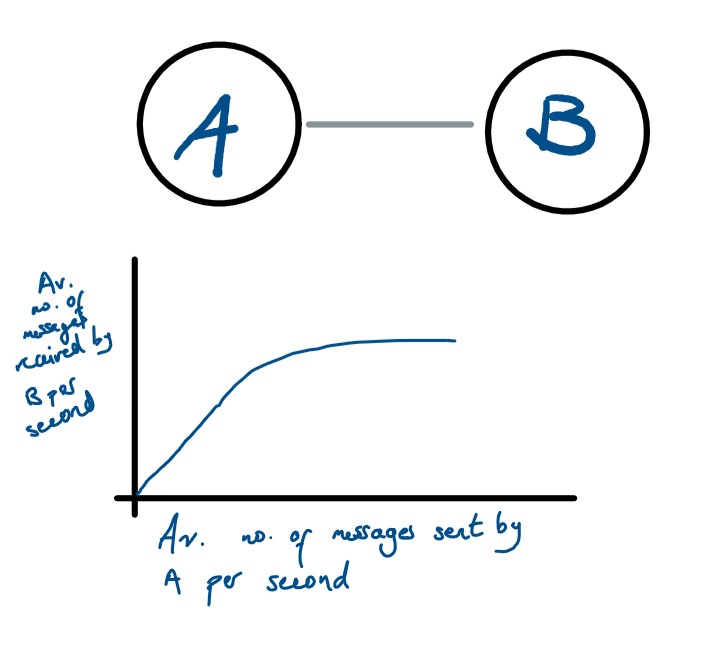 A
B
Av.
no. of
messages
recieved by
B per
second
Av. no. of messages sent by
A per second